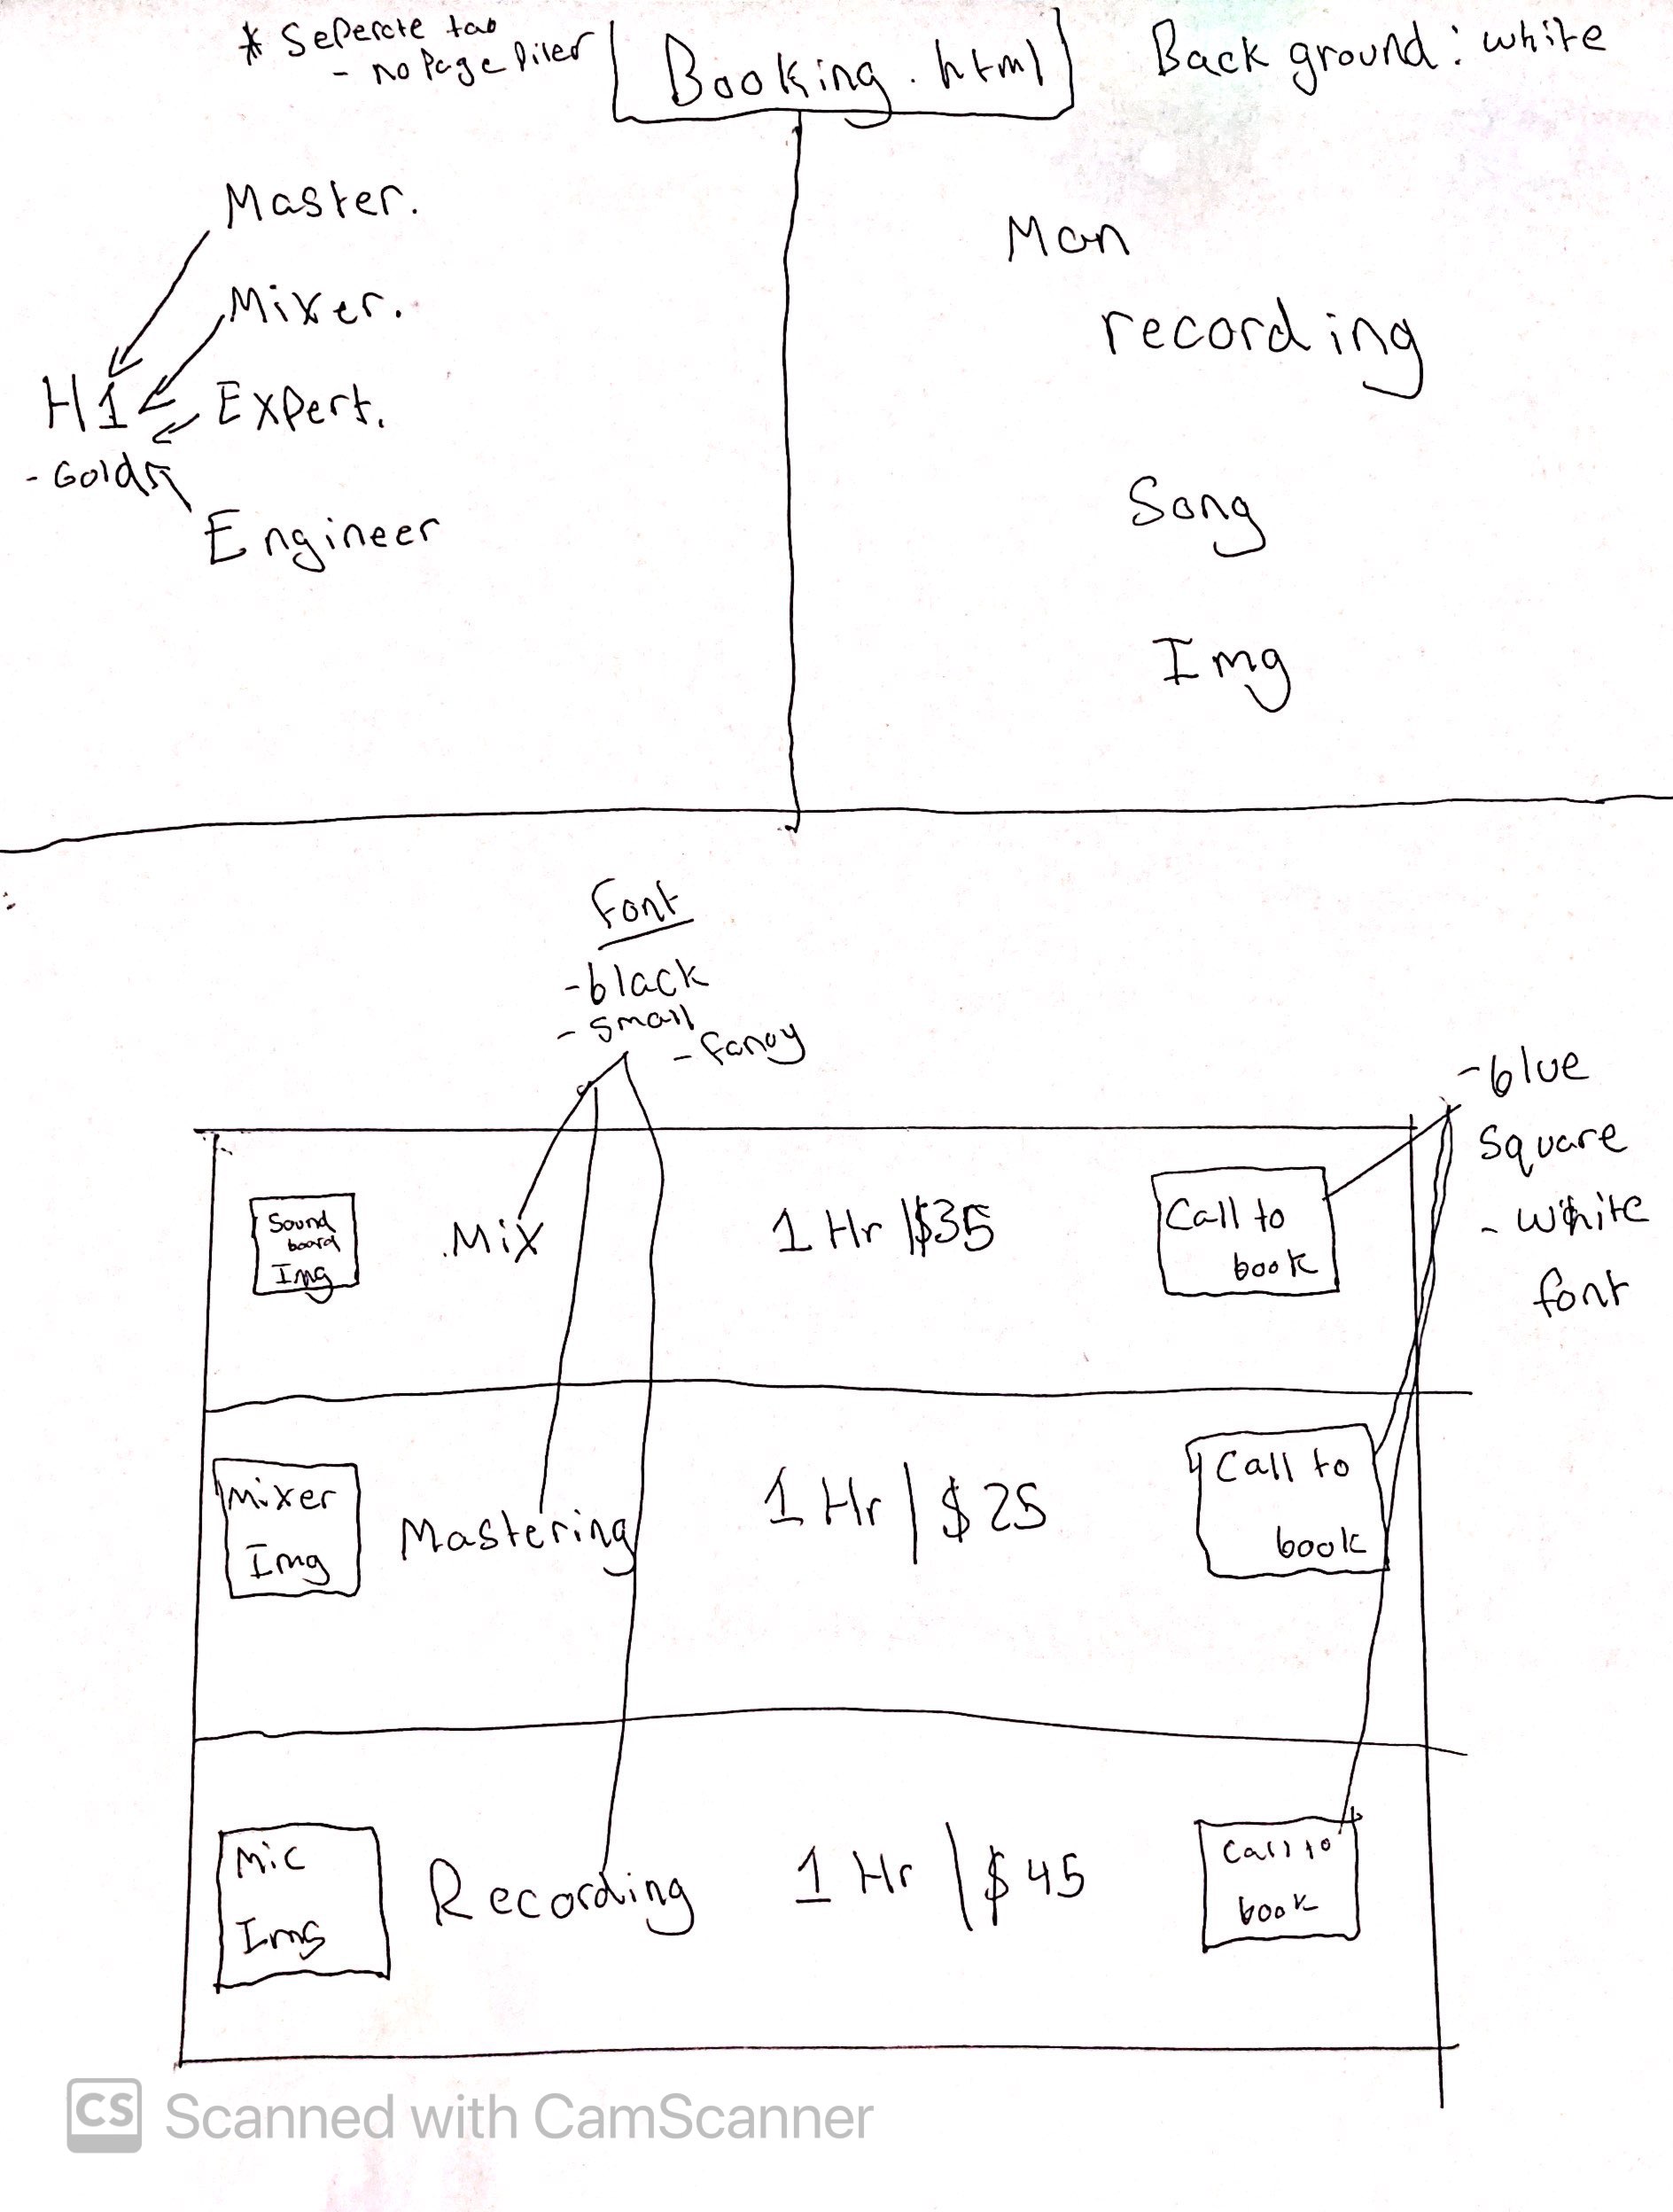 * Seperate tab
- no Page Piler
Booking.html
Back ground: white
Master.
Mixer.
H1
Expert.
- Gold
Engineer
Man
recording
Song
Img
Font
- black
- small
- fancy
- blue
square
- white
font
Sound
board
Img
.Mix
1 Hr |$35
Call to
book
Mixer
Img
Mastering
1 Hr | $25
Call to
book
Mic
Img
Recording
1 Hr | $45
Call to
book
CS Scanned with CamScanner